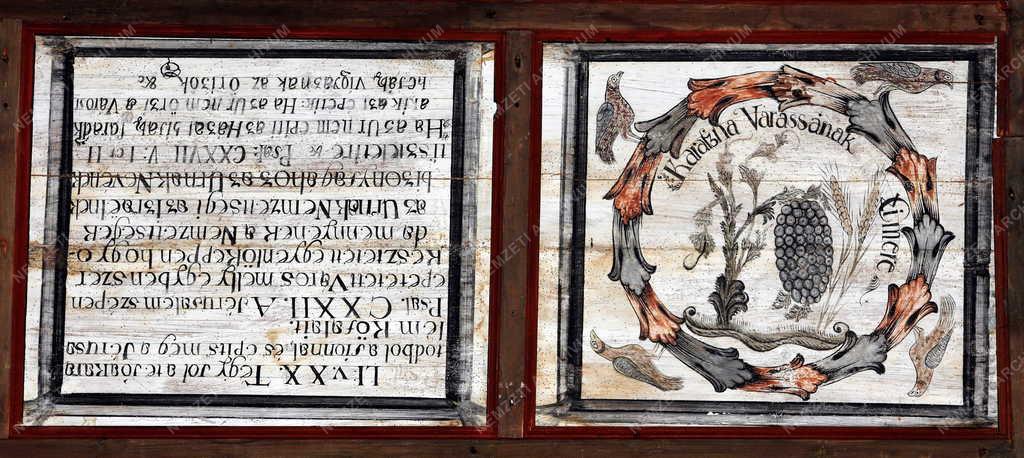 LI v. XX. Tégy jol a te jóakara
todbol a Sionnal, és epits meg a Jerusa
lem Köfalait.
Psal. CXXII. A Jérusalem szepen
epetetett Város melly egyben szer
kesztetett egyenlőkeppen hogy o
da mennyenek a Nemzettségek
az Urnak Nemzettsegi az Israelnek
bizonysagahoz az Urnak Nevenek
&c Psal: CXXVII V. I et II
Ha az Ur nem epiti az Házat hijab,
a kik azt epetik: Ha az Ur nem örzi a Várost
hejáb, vigyaznak az Örizök &c
Varassának
Cimere